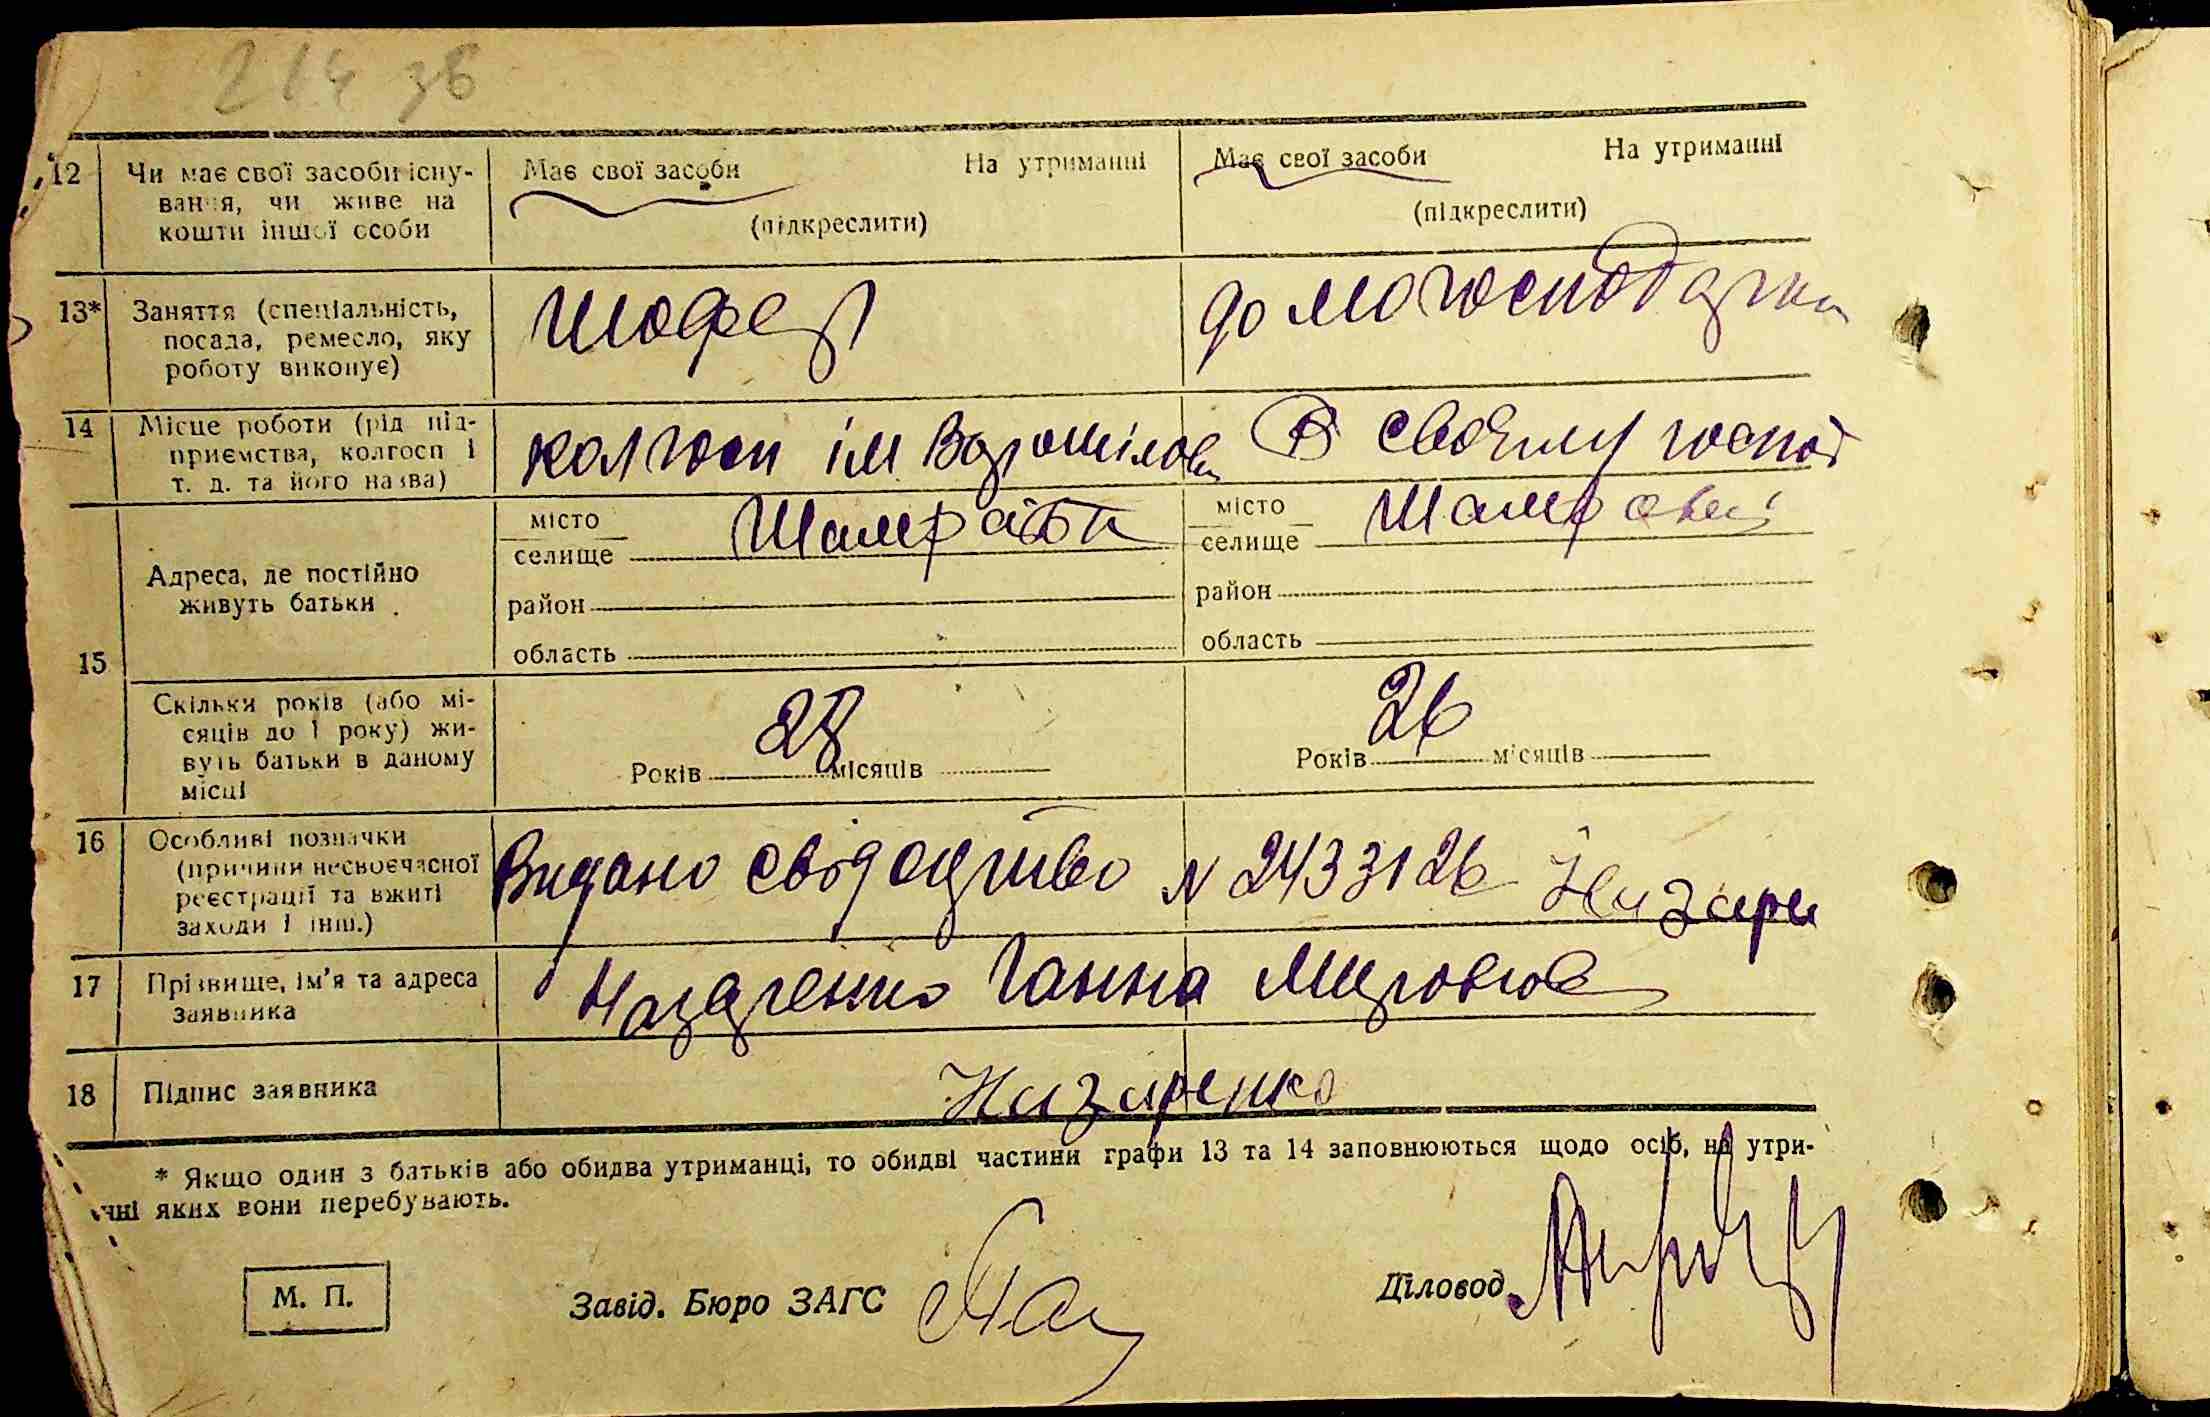 214 зв
12 Чи має свої засоби існу-
вання, чи живе на
кошти іншої особи
Має свої засоби На утриманні
(підкреслити)
Має свої засоби На утриманні
(підкреслити)
13* Заняття (спеціальність,
посада, ремесло, яку
роботу виконує)
Шофер
домогосподарка
14 Місце роботи (рід під-
приємства, колгосп і
т. д. та його назва)
колгосп ім Ворошілова
В своєму господ
15 Адреса, де постійно
живуть батьки
місто
селище Шамраївка
район
область
місто
селище
район
область
Скільки років (або мі-
сяців до 1 року) жи-
вуть батьки в даному
місці
Років 28 місяців
Років 26 місяців
16 Особливі позначки
(причини несвоєчасної
реєстрації та вжиті
заходи і інш.)
Видано свідоцтво N 2433126
17 Прізвище, ім'я та адреса
заявника
Назаренко Ганна
18 Підпис заявника
Назаренко
* Якщо один з батьків або обидва утриманці, то обидві частини графи 13 та 14 заповнюються щодо осіб, на утри-
чні яких вони перебувають.
М. П.
Завід. Бюро ЗАГС
Діловод